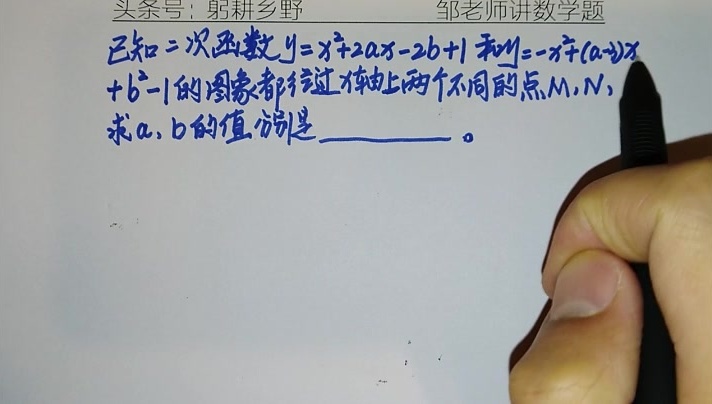 头条号：躬耕乡野 邹老师讲数学题
已知二次函数y=x²+2ax-2b+1和y=-x²+(a-3)x
+b²-1的图象都经过x轴上两个不同的点M,N,
求a、b的值分别是________。